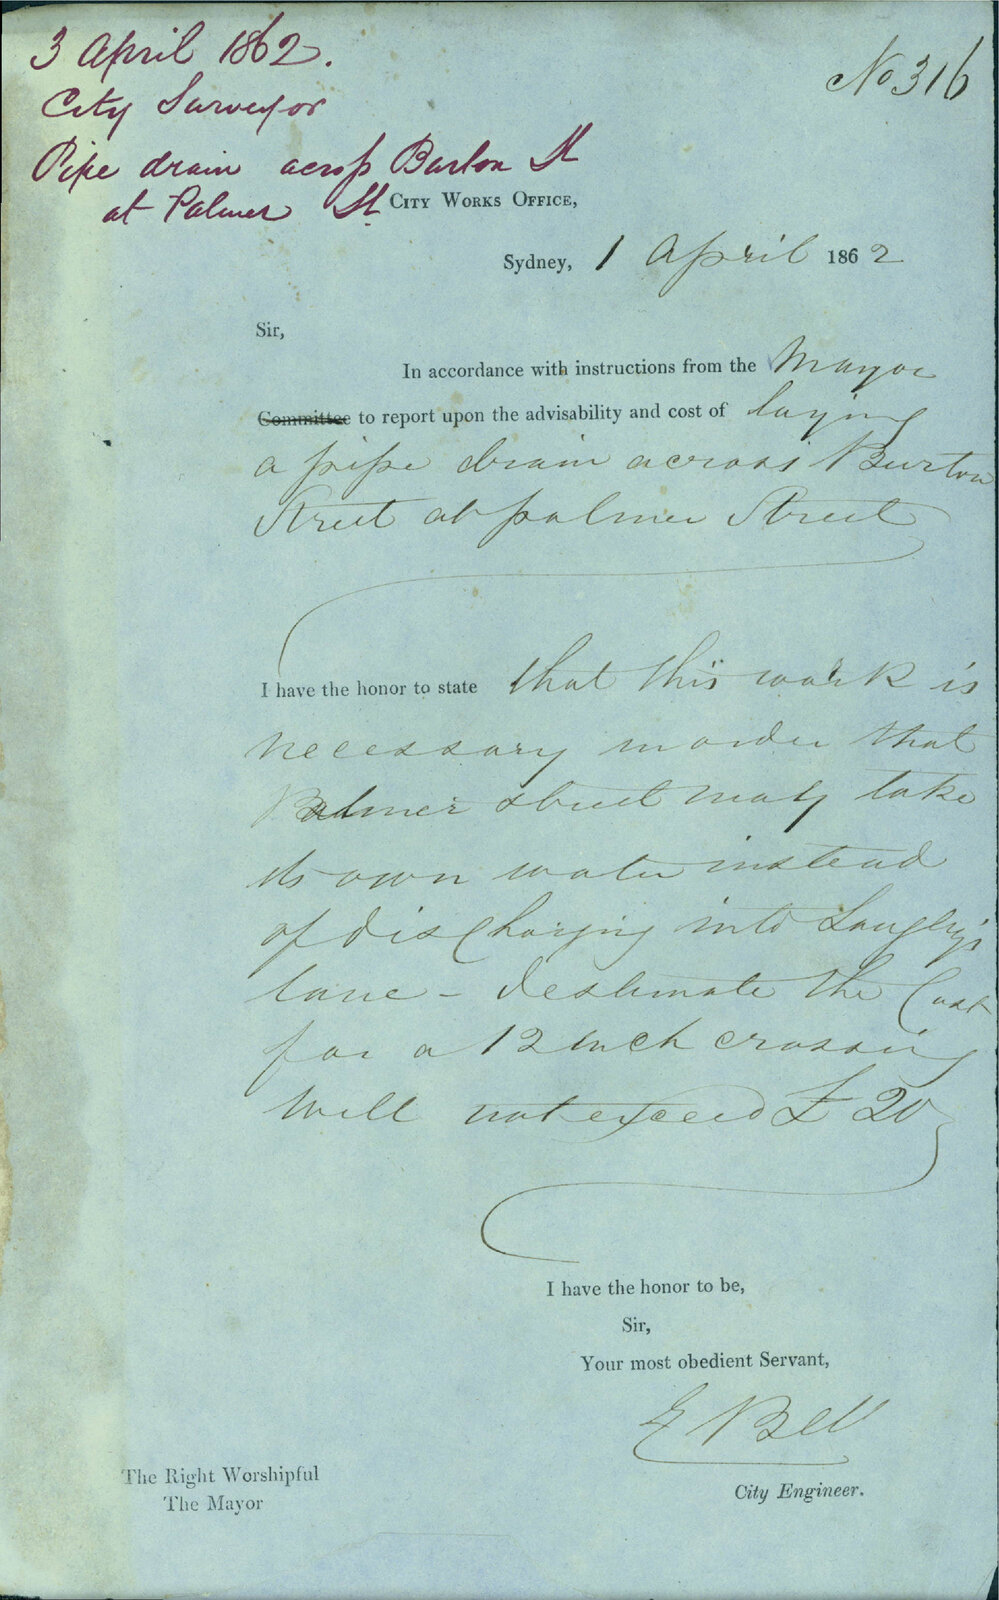 3 April 1862.
No 316
City Surveyor
Pipe drain across Burton St
at Palmer St
CITY WORKS OFFICE,
Sydney, 1 April 1862
Sir,
In accordance with instructions from the Mayor
Committee to report upon the advisability and cost of laying
a pipe drain across Burton
Street at palmer Street
I have the honor to state that this work is
necessary in order that
Palmer street may take
its own water instead
of discharging into Langley's
lane - I estimate the Cost
for a 12 inch crossing
will not exceed £ 20
I have the honor to be,
Sir,
Your most obedient Servant,
E Bell
City Engineer.
The Right Worshipful
The Mayor